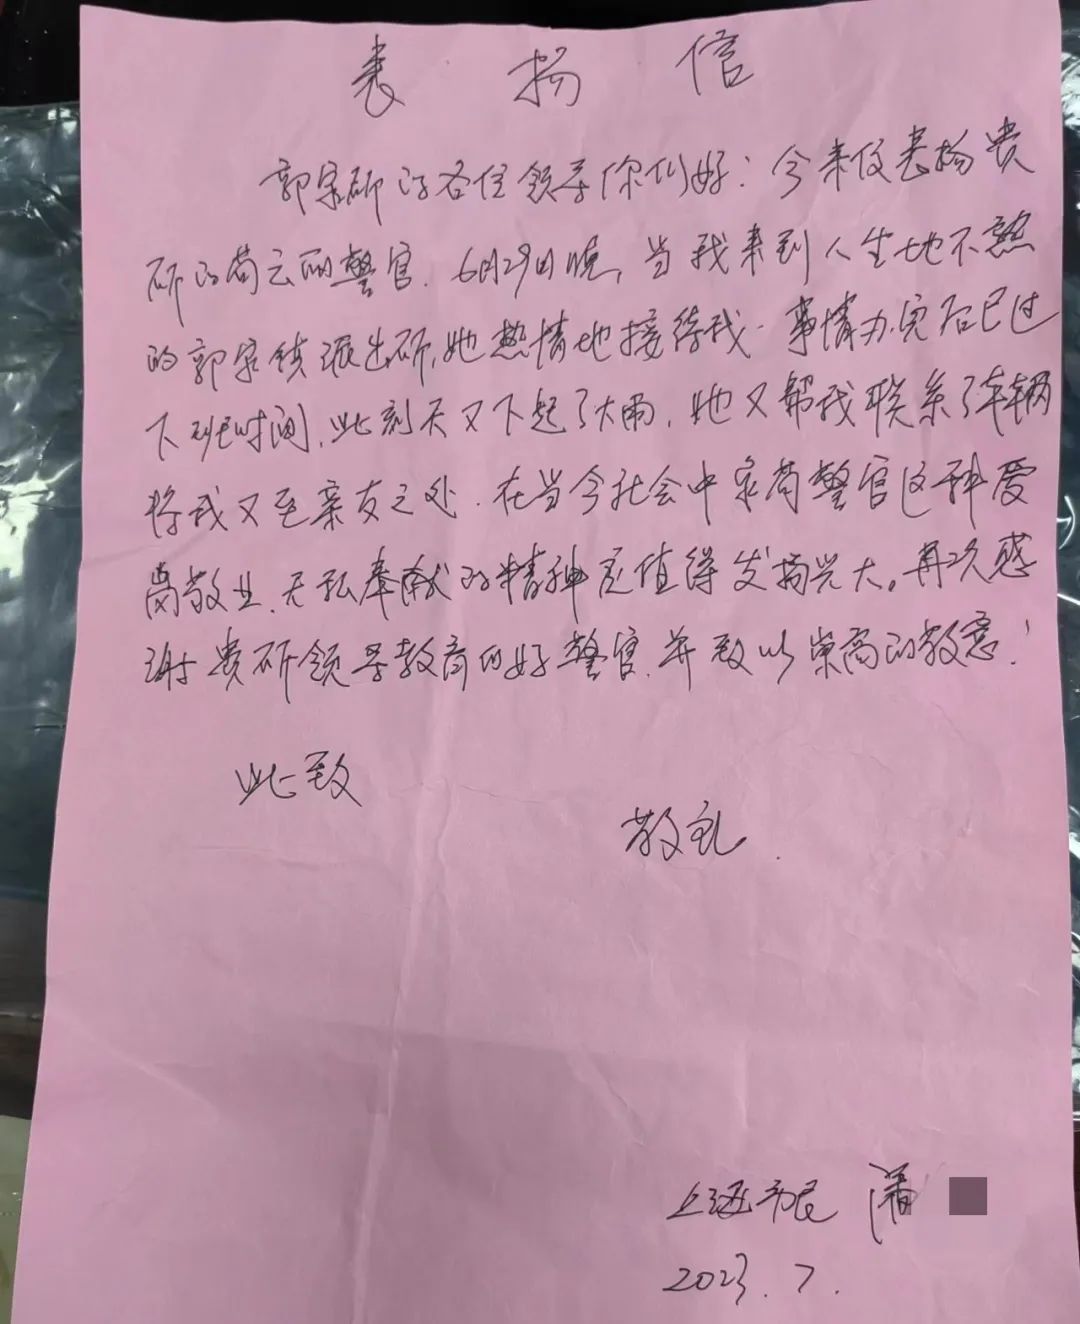 表扬信
郭家所的各位领导你们好：今来信表扬贵
所的苟云丽警官．6月29日晚，当我来到人生地不熟
的郭家镇派出所，她热情地接待我．事情办完后已过
下班时间，此刻天又下起了大雨，她又帮我联系了车辆
将我又至亲友之处．在当今社会中象苟警官这种爱
岗敬业、无私奉献的精神是值得发扬光大。再次感
谢贵所领导教育的好警官，并致以崇高的敬意！
此致
敬礼．
上海市民 潘
2023．7．